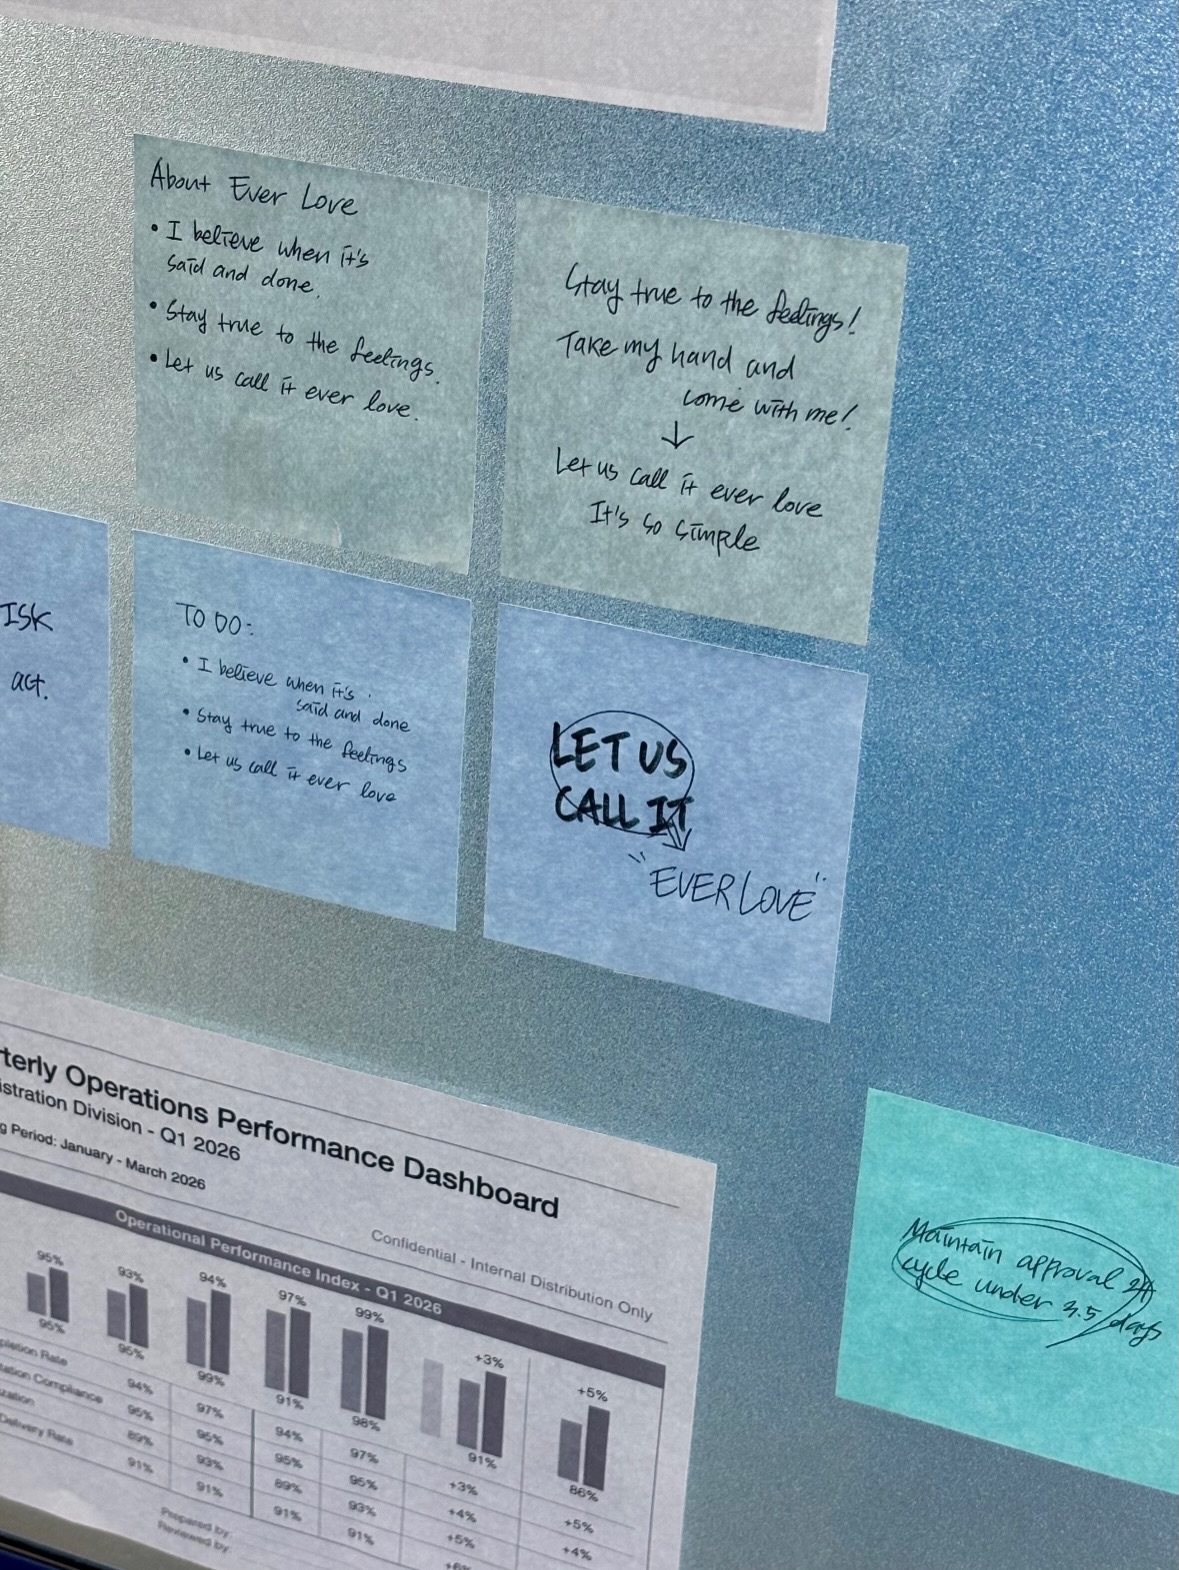 About Ever Love
• I believe when it's
said and done.
• Stay true to the feelings.
• Let us call it ever love.
Stay true to the feelings!
Take my hand and
come with me!
↓
Let us call it ever love
It's so simple
ISK
act.
TO DO:
• I believe when it's
said and done
• Stay true to the feelings
• Let us call it ever love
LET US
CALL IT
"EVER LOVE"
terly Operations Performance Dashboard
istration Division - Q1 2026
g Period: January - March 2026
Confidential - Internal Distribution Only
Operational Performance Index - Q1 2026
95% 93% 94% 97% 99% +3% +5%
95% 95% 99% 91% 98% 91% 86%
pletion Rate 94% 97% 94% 97% +3% +5%
tation Compliance 95% 95% 95% 95% +4% +4%
zation 89% 93% 89% 93% +5%
Delivery Rate 91% 91% 91% 91%
Prepared by:
Reviewed by:
Maintain approval
cycle under 3.5 days